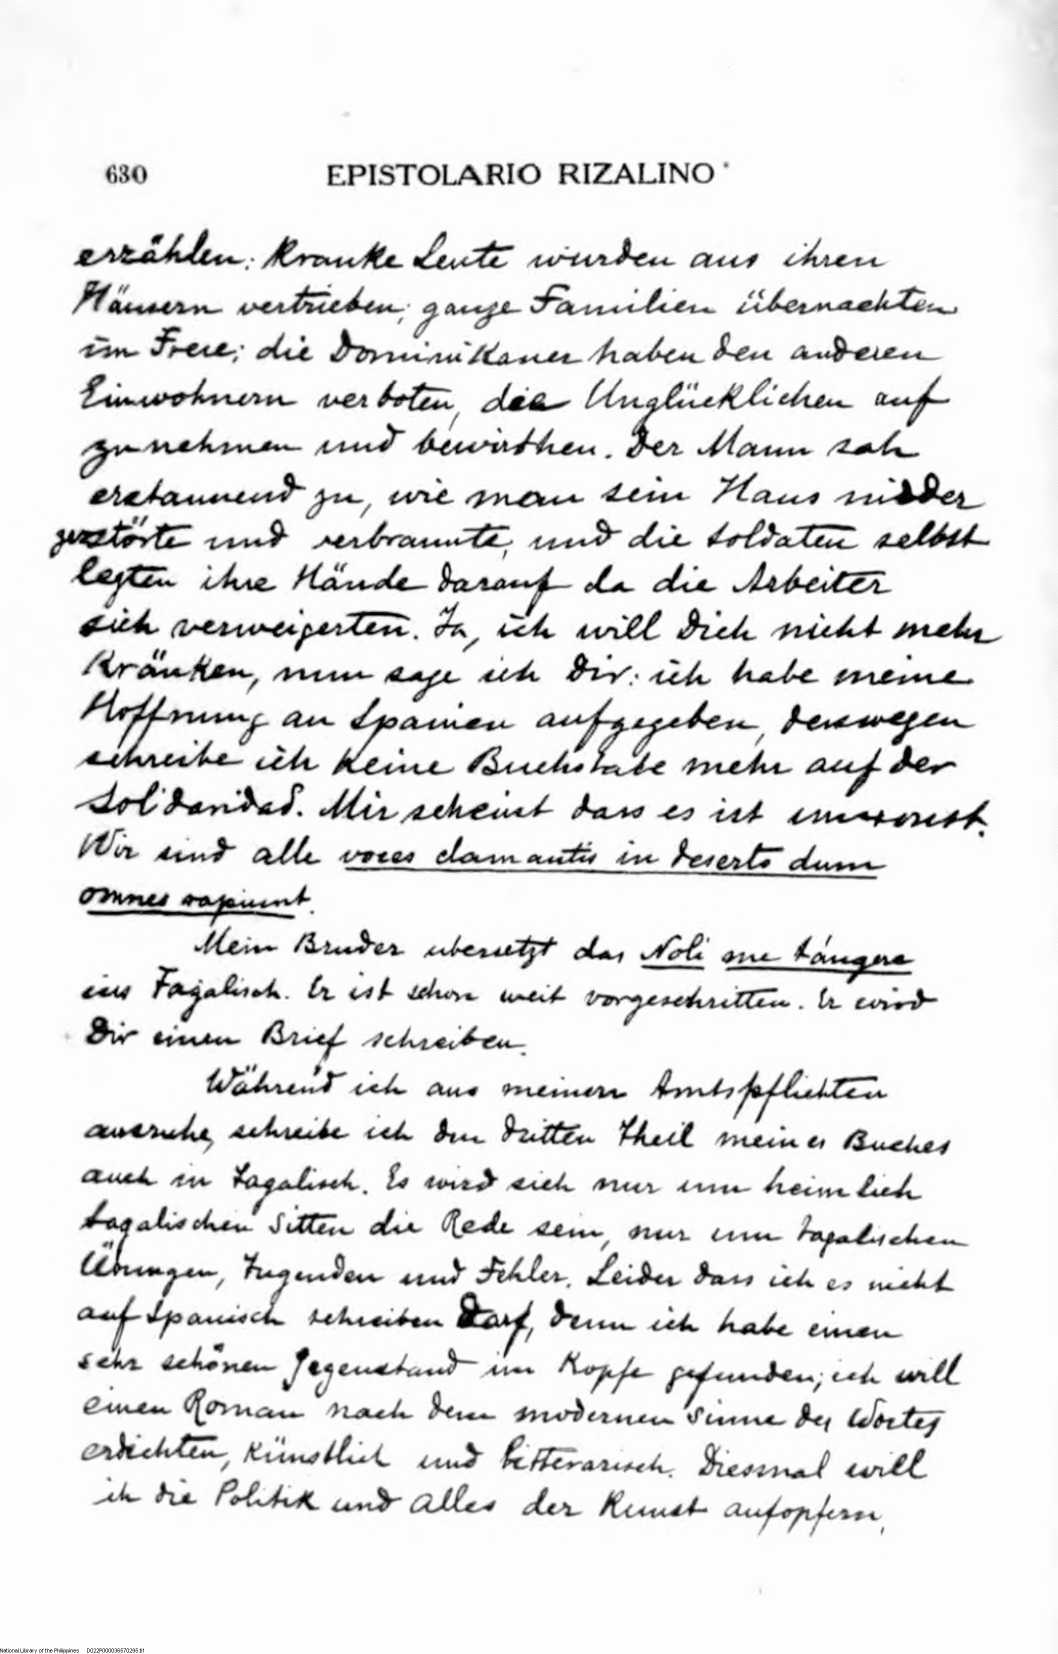 630 EPISTOLARIO RIZALINO
erzählen: Kranke Leute wurden aus ihren
Häusern vertrieben; ganze Familien übernachten
im Freie; die Dominikaner haben den anderen
Einwohnern verboten, die Unglücklichen auf
zu nehmen und bewirthen. Der Mann sah
erstaunend zu, wie man sein Haus nieder
zerstörte und verbrannte, und die Soldaten selbst
legten ihre Hände darauf da die Arbeiter
sich verweigerten. Ja, ich will Dich nicht mehr
kränken, nun sage ich Dir: ich habe meine
Hoffnung an Spanien aufgegeben, deswegen
schreibe ich keine Buchstabe mehr auf der
Solidaridad. Mir scheint dass es ist umsonst.
Wir sind alle voces clamantis in deserto dum
omnes rapiunt.
Mein Bruder ubersetzt das Noli me tángere
ins Tagalisch. Er ist schon weit vorgeschritten. Er wird
Dir einen Brief schreiben.
Während ich aus meinen Amtspflichten
ausruhe, schreibe ich den dritten Theil meines Buches
auch in Tagalisch. Es wird sich nur um heimlich
tagalischen Sitten die Rede sein, nur um tagalischen
Tugenden und Fehler. Leider dass ich es nicht
auf Spanisch schreiben Darf, denn ich habe einen
sehr schönen Gegenstand im Kopfe gefunden; ich will
einen Roman nach dem modernen Sinne des Wortes
erdichten, künstlich und litterarisch. Diesmal will
ich die Politik und alles der Kunst aufopfern,
National Library of the Philippines